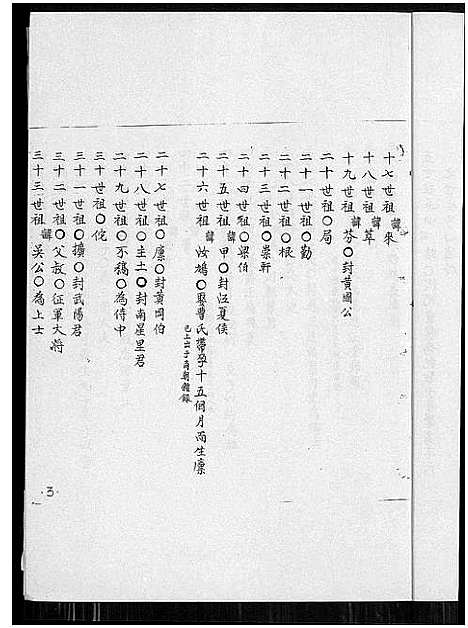 十七世祖諱來
十八世祖諱萃
十九世祖諱芬○封黃國公
二十世祖○局
二十一世祖○勤
二十二世祖○根
二十三世祖○崇軒
二十四世祖○梁伯
二十五世祖諱甲○封江夏侯
二十六世祖諱汝鳩○娶曹氏帶孕十五個月而生廩
已上出于商朝
二十七世祖○廩○封黃岡伯
二十八世祖○主土○封南星里君
二十九世祖○不稿○為侍中
三十世祖○侘
三十一世祖○擴○封武陽君
三十二世祖○父敖○征軍大將
三十三世祖諱吳公○為上士
·3·